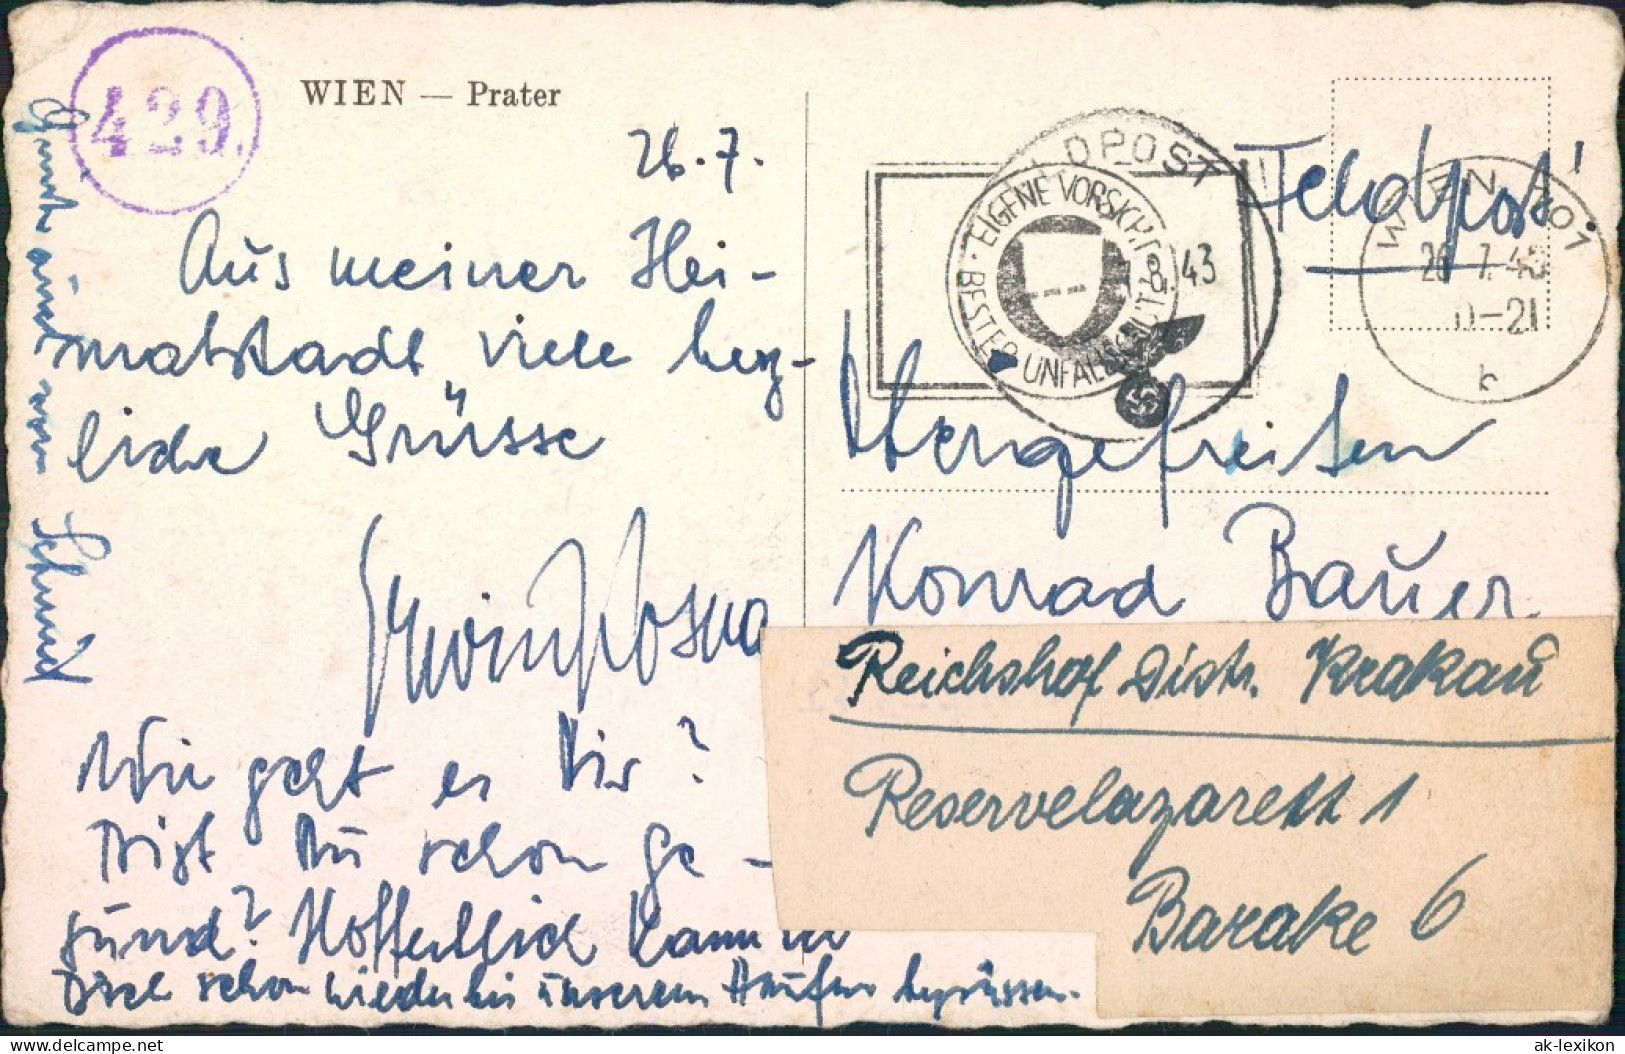 429.
WIEN — Prater
26.7.
Aus meiner Hei-
matstadt viele herz-
liche Grüsse
Wie geht es Dir?
Bist Du schon ge-
sund? Hoffentlich kann ich
Dich schon wieder bei unserem Haufen begrüssen.
Grüsse auch von Schmidt
Feldpost!
FELDPOST
1.8.43
EIGENE VORSICHT · BESTER UNFALLSCHUTZ ·
WIEN 101
26.7.43
-21
b
Obergefreiten
Konrad Bauer
Reichshof Distr. Krakau
Reservelazarett 1
Barake 6
delcampe.net
ak-lexikon